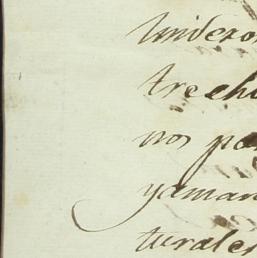 tuviero
trecho
nos pa
yaman
turales